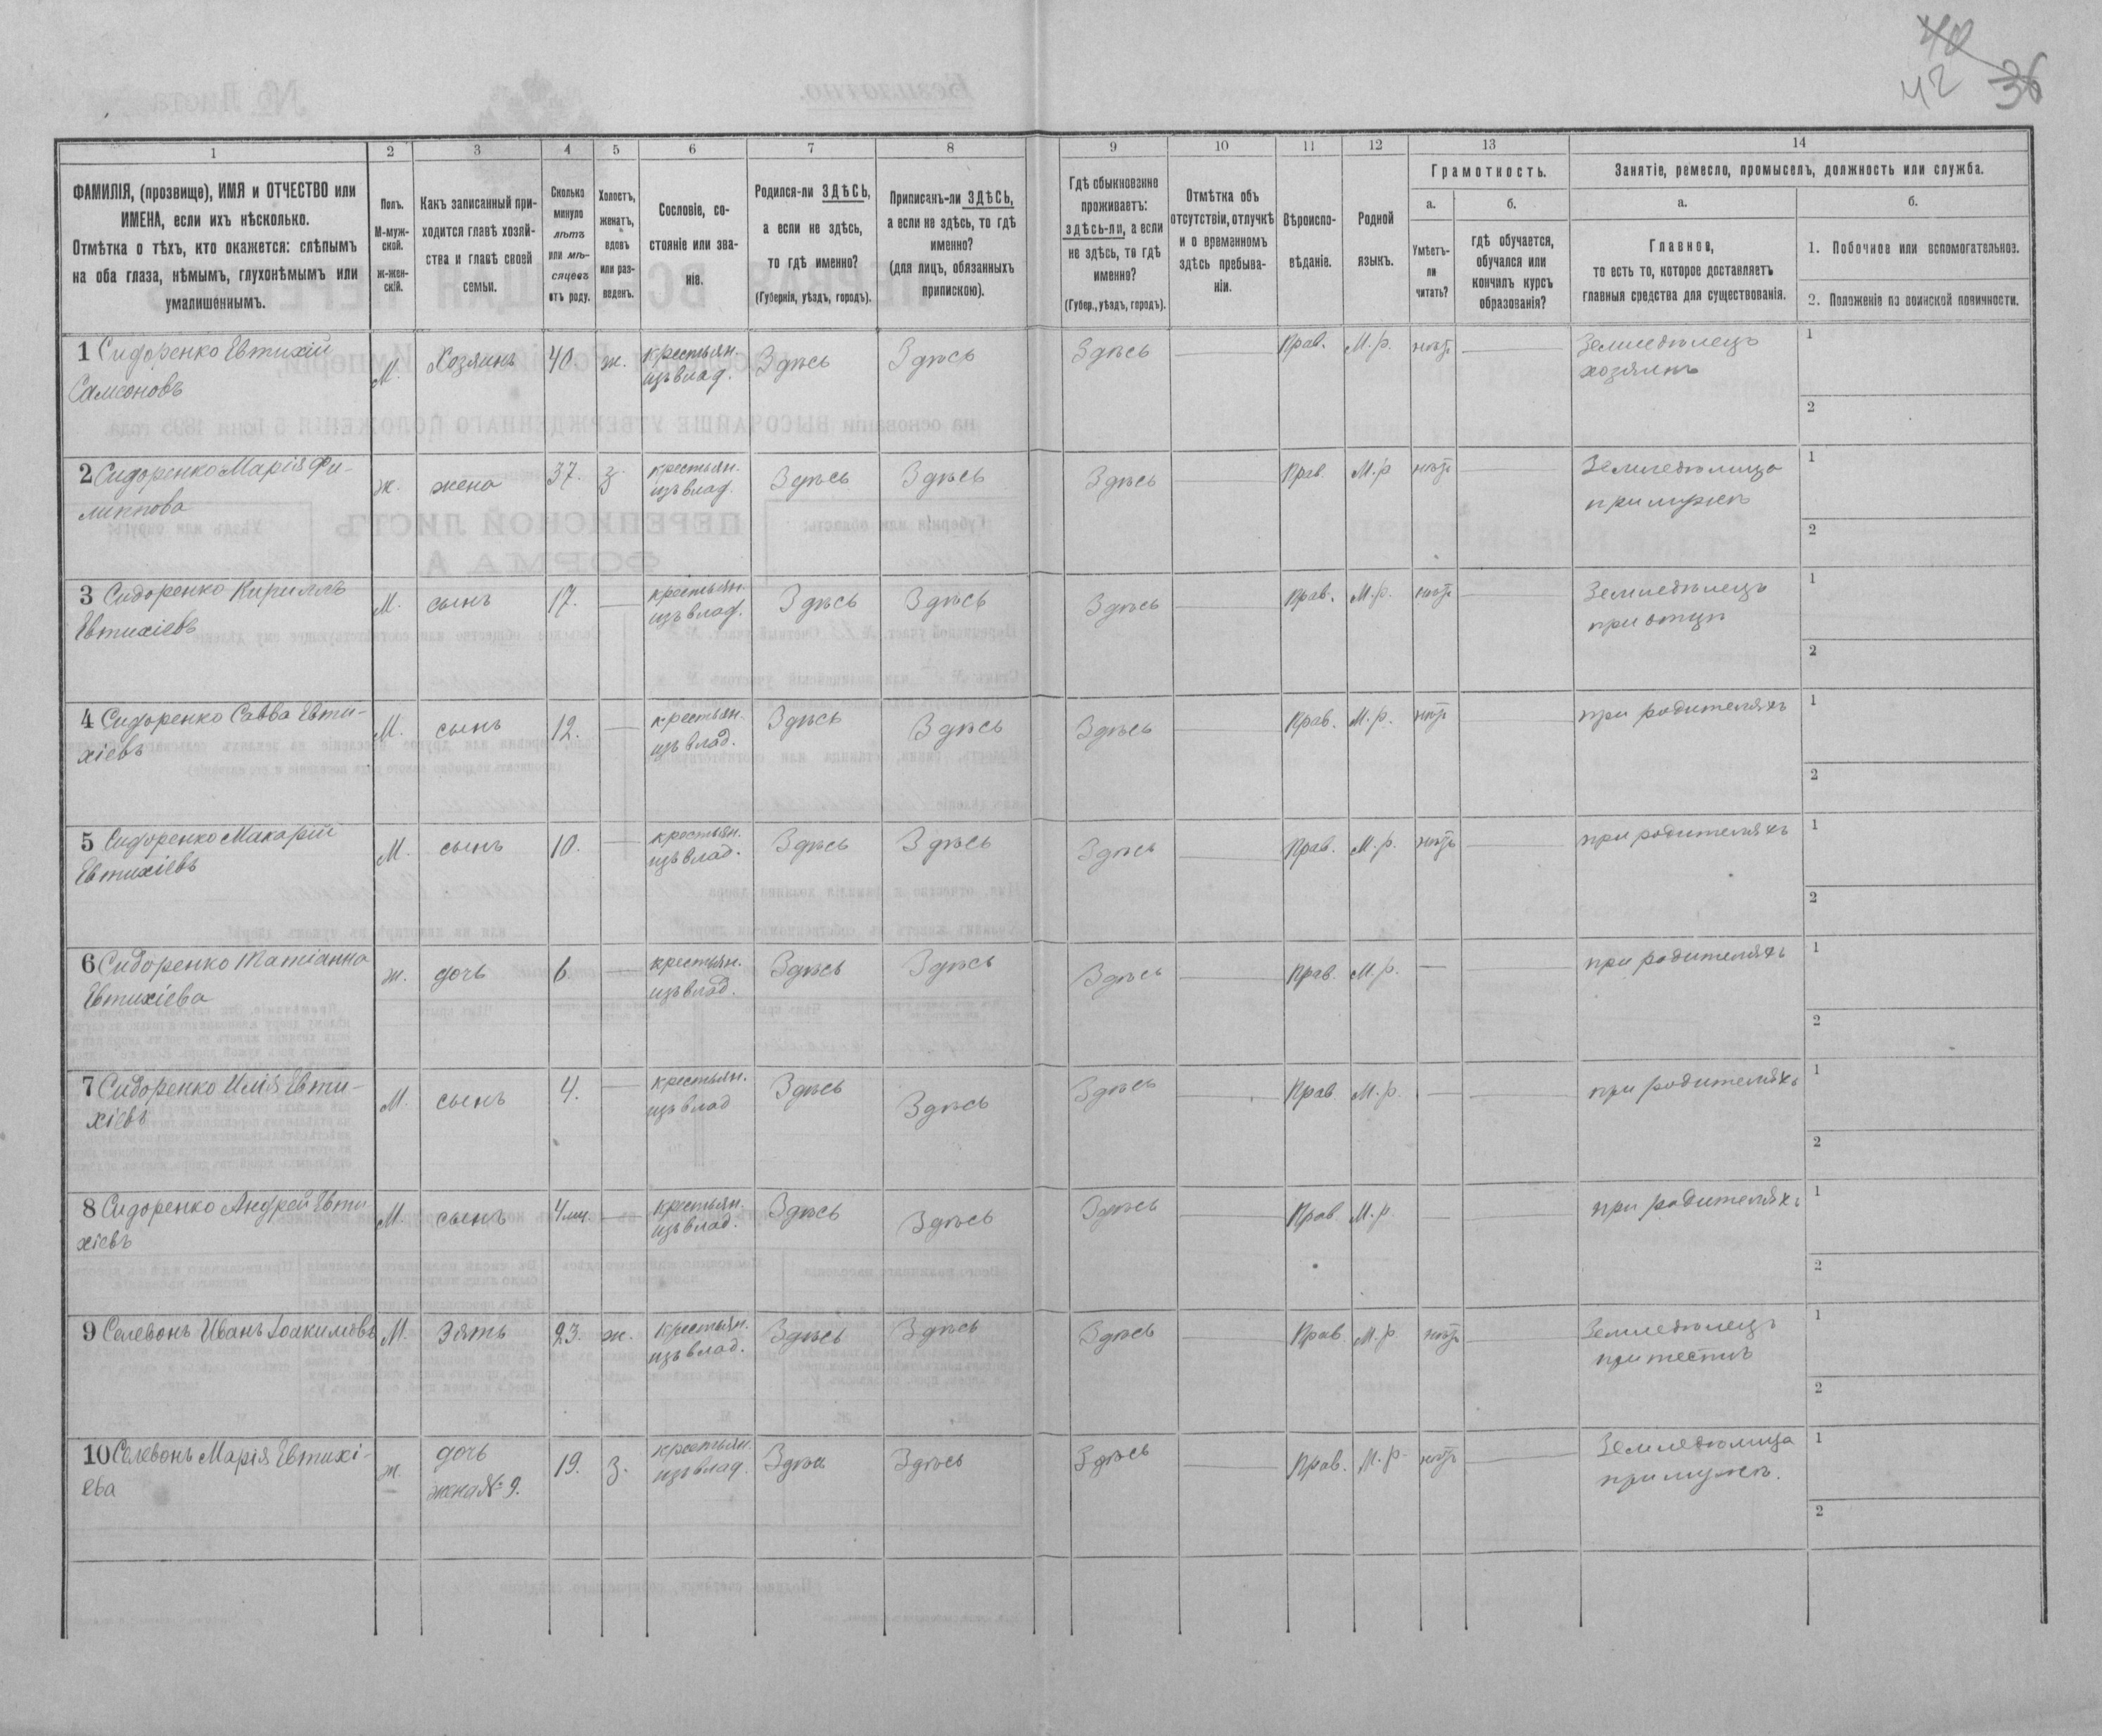 40
42 36
1 2 3 4 5 6 7 8 9 10 11 12 13 14
ФАМИЛІЯ, (прозвище), ИМЯ и ОТЧЕСТВО или
ИМЕНА, если ихъ нѣсколько.
Отмѣтка о тѣхъ, кто окажется: слѣпымъ
на оба глаза, нѣмымъ, глухонѣмымъ или
умалишеннымъ.
Полъ.
М-муж-
ской.
Ж-жен-
скій.
Какъ записанный при-
ходится главѣ хозяй-
ства и главѣ своей
семьи.
Сколько
минуло
лѣтъ
или мѣ-
сяцевъ
отъ роду.
Холостъ,
женатъ,
вдовъ
или раз-
веденъ.
Сословіе, со-
стояніе или зва-
ніе.
Родился-ли ЗДѢСЬ,
а если не здѣсь,
то гдѣ именно?
(Губернія, уѣздъ, городъ).
Приписанъ-ли ЗДѢСЬ,
а если не здѣсь, то гдѣ
именно?
(для лицъ, обязанныхъ
припискою).
Гдѣ обыкновенно
проживаетъ:
здѣсь-ли, а если
не здѣсь, то гдѣ
именно?
(Губер., уѣздъ, городъ).
Отмѣтка объ
отсутствіи, отлучкѣ
и о временномъ
здѣсь пребыва-
ніи.
Вѣроиспо-
вѣданіе.
Родной
языкъ.
Грамотность.
а.
Умѣетъ-
ли
читать?
б.
гдѣ обучается,
обучался или
кончилъ курсъ
образованія?
Занятіе, ремесло, промыселъ, должность или служба.
а.
Главное,
то есть то, которое доставляетъ
главныя средства для существованія.
б.
1. Побочное или вспомогательное.
2. Положеніе по воинской повинности.
1 Сидоренко Евтихій М. Хозяинъ 40. ж. крестьян. Здѣсь Здѣсь Здѣсь Прав. М.р. нѣтъ Земледѣлецъ 1
Самсоновъ изъ влад. хозяинъ
2
2 Сидоренко Марія Фи- ж. жена 37. з. крестьян. Здѣсь Здѣсь Здѣсь Прав М.р нѣтъ Земледѣлица 1
липпова изъ влад. при мужѣ
2
3 Сидоренко Кириллъ М. сынъ 17. крестьян. Здѣсь Здѣсь Здѣсь Прав. М.р. нѣтъ Земледѣлецъ 1
Евтихіевъ изъ влад. при отцѣ
2
4 Сидоренко Савва Евти- М. сынъ 12. крестьян. Здѣсь Здѣсь Здѣсь Прав. М.р. нѣтъ при родителяхъ 1
хіевъ изъ влад.
2
5 Сидоренко Макарій М. сынъ 10. крестьян. Здѣсь Здѣсь Здѣсь Прав. М.р. нѣтъ при родителяхъ 1
Евтихіевъ изъ влад.
2
6 Сидоренко Татіанна ж. дочь 6. крестьян. Здѣсь Здѣсь Здѣсь Прав. М.р. при родителяхъ 1
Евтихіева изъ влад.
2
7 Сидоренко Илія Евти- М. сынъ 4. крестьян. Здѣсь Здѣсь Здѣсь Прав М.р. при родителяхъ 1
хіевъ изъ влад
2
8 Сидоренко Андрей Евти М. сынъ 4 мц. крестьян. Здѣсь Здѣсь Здѣсь Прав М.р. при родителяхъ 1
хіевъ изъ влад.
2
9 Селевонъ Иванъ Іоакимовъ М. Зять 23. ж. крестьян. Здѣсь Здѣсь Здѣсь Прав М.р нѣтъ Земледѣлецъ 1
изъ влад. при тестѣ
2
10 Селевонъ Марія Евтихі- ж. дочь 19. з. крестьян. Здѣсь Здѣсь Здѣсь Прав. М.р. нѣтъ Земледѣлица 1
ева жена № 9. изъ влад. при мужѣ.
2